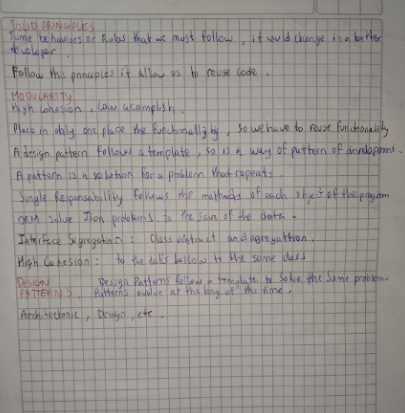 SOLID PRINCIPLES
Some behaviors or Rules that we must follow, it would change in a better
developer.
Follow this principles it allow us to reuse code.
MODULARITY
High cohesion, Low acomplish.
Place in only one place the functionallity, so we have to reuse functionality
A design pattern follows a template, so is a way of pattern of development.
A pattern is a solution for a problem that repeats.
Single Responsability follows the methods of each object of the program
ORM solve problems to the join of the data.
Interface Segregation: Class abstract and agregattion.
High Cohesion: to the data bellow to the same class
DESIGN Design Patterns follow a template to solve the same problem
PATTERNS. Patterns evolve at the long of the time.
Architectonic, Design, etc.